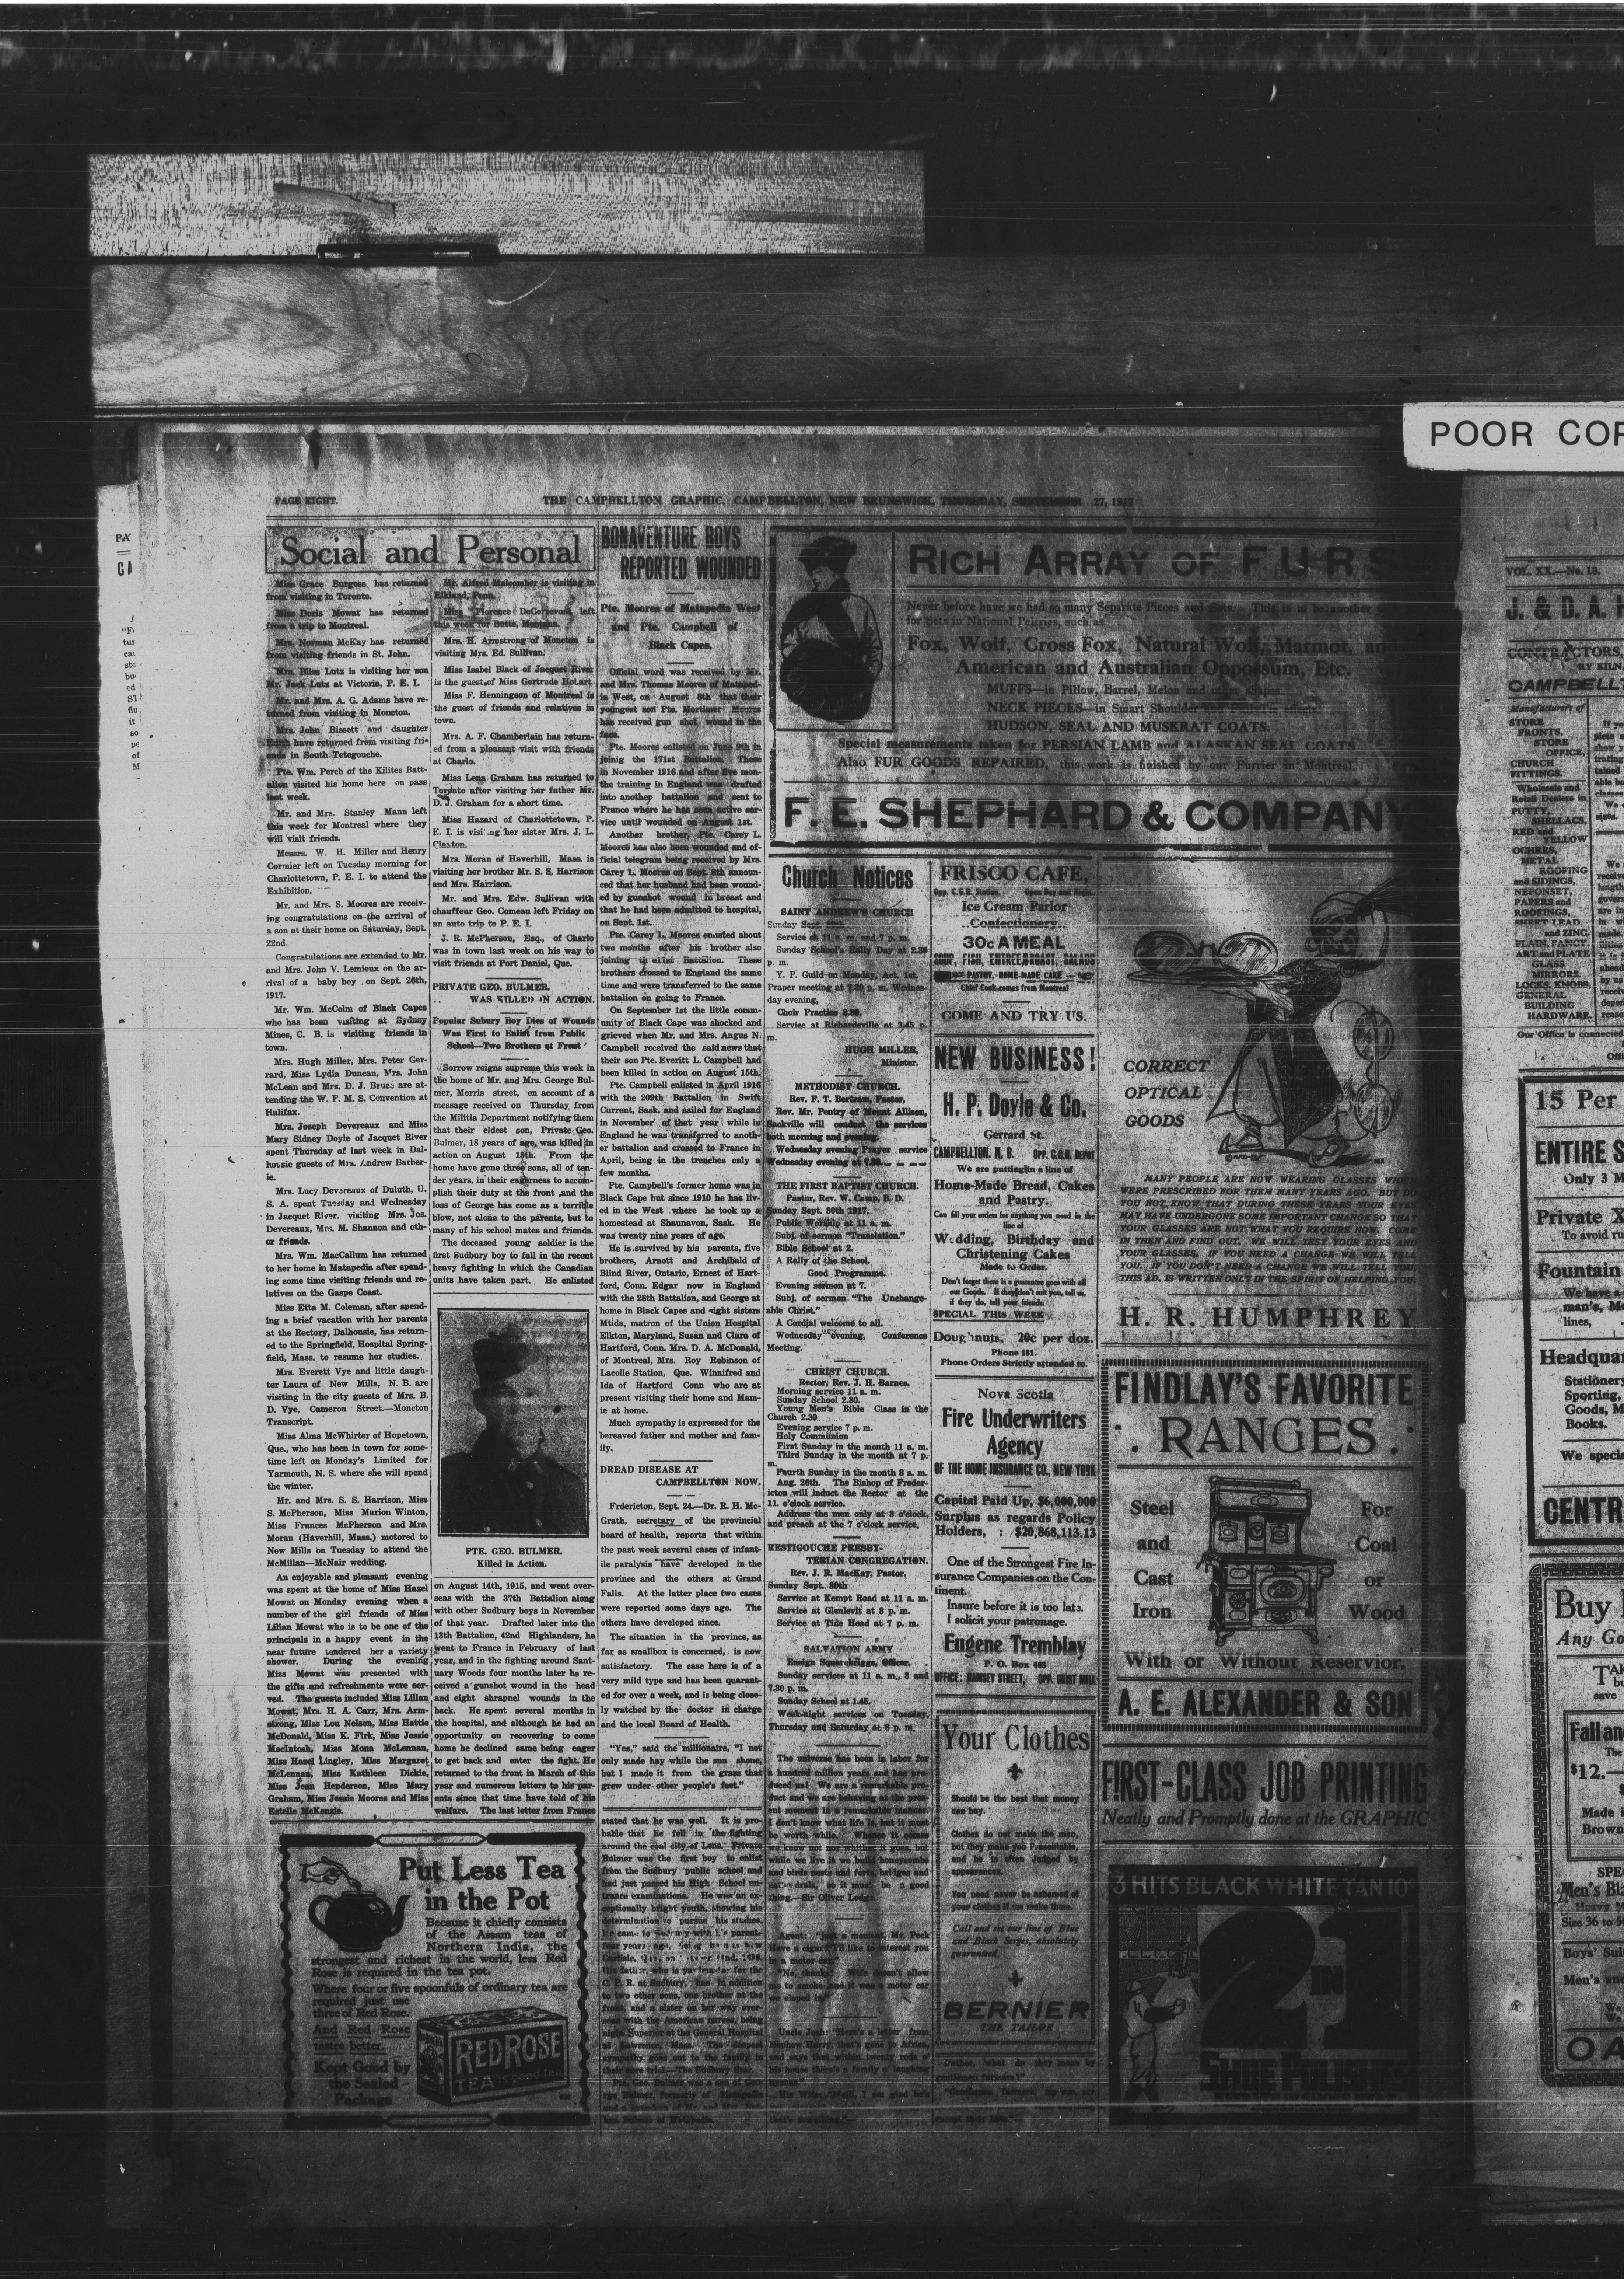 POOR COP
PAGE EIGHT.
THE CAMPBELLTON GRAPHIC, CAMPBELLTON, NEW BRUNSWICK, THURSDAY, SEPTEMBER 27, 1917
Social and Personal
Miss Grace Burgess has returned
from visiting in Toronto.
Miss Doris Mowat has returned
from a trip to Montreal.
Mrs. Norman McKay has returned
from visiting friends in St. John.
Mrs. Bliss Lutz is visiting her son
Mr. Jack Lutz at Victoria, P. E. I.
Mr. and Mrs. A. G. Adams have re-
turned from visiting in Moncton.
Mrs. John Bissett and daughter
Edith have returned from visiting fri-
ends in South Tetegouche.
Pte. Wm. Perch of the Kilites Batt-
alion visited his home here on pass
last week.
Mr. and Mrs. Stanley Mann left
this week for Montreal where they
will visit friends.
Messrs. W. H. Miller and Henry
Cormier left on Tuesday morning for
Charlottetown, P. E. I. to attend the
Exhibition.
Mr. and Mrs. S. Moores are receiv-
ing congratulations on the arrival of
a son at their home on Saturday, Sept.
22nd.
Congratulations are extended to Mr.
and Mrs. John V. Lemieux on the ar-
rival of a baby boy on Sept. 26th,
1917.
Mr. Wm. McColm of Black Capes
who has been visiting at Sydney
Mines, C. B. is visiting friends in
town.
Mrs. Hugh Miller, Mrs. Peter Ger-
rard, Miss Lydia Duncan, Mrs. John
McLean and Mrs. D. J. Bruce are at-
tending the W. F. M. S. Convention at
Halifax.
Mrs. Joseph Devereaux and Miss
Mary Sidney Doyle of Jacquet River
spent Thursday of last week in Dal-
housie guests of Mrs. Andrew Barber-
ie.
Mrs. Lucy Devereaux of Duluth, U.
S. A. spent Tuesday and Wednesday
in Jacquet River. visiting Mrs. Jos.
Devereaux, Mrs. M. Shannon and oth-
er friends.
Mrs. Wm. MacCallum has returned
to her home in Matapedia after spend-
ing some time visiting friends and re-
latives on the Gaspe Coast.
Miss Etta M. Coleman, after spend-
ing a brief vacation with her parents
at the Rectory, Dalhousie, has return-
ed to the Springfield, Hospital Spring-
field, Mass. to resume her studies.
Mrs. Everett Vye and little daugh-
ter Laura of New Mills, N. B. are
visiting in the city guests of Mrs. B.
D. Vye, Cameron Street.—Moncton
Transcript.
Miss Alma McWhirter of Hopetown,
Que., who has been in town for some-
time left on Monday's Limited for
Yarmouth, N. S. where she will spend
the winter.
Mr. and Mrs. S. S. Harrison, Miss
S. McPherson, Miss Marion Winton,
Miss Frances McPherson and Mrs.
Moran (Haverhill, Mass.) motored to
New Mills on Tuesday to attend the
McMillan—McNair wedding.
An enjoyable and pleasant evening
was spent at the home of Miss Hazel
Mowat on Monday evening when a
number of the girl friends of Miss
Lilian Mowat who is to be one of the
principals in a happy event in the
near future tendered her a variety
shower. During the evening
Miss Mowat was presented with
the gifts and refreshments were ser-
ved. The guests included Miss Lilian
Mowat, Mrs. H. A. Carr, Mrs. Arm-
strong, Miss Lou Nelson, Miss Hattie
McDonald, Miss K. Firk, Miss Jessie
MacIntosh, Miss Mona McLennan,
Miss Hazel Lingley, Miss Margaret
McLennan, Miss Kathleen Dickie,
Miss Jean Henderson, Miss Mary
Graham, Miss Jessie Moores and Miss
Estelle McKenzie.
Put Less Tea
in the Pot
Because it chiefly consists
of the Assam teas of
Northern India, the
strongest and richest in the world, less Red
Rose is required in the tea pot.
Where four or five spoonfuls of ordinary tea are
required just use
three of Red Rose.
And Red Rose
tastes better.
Kept Good by
the Sealed
Package
RED ROSE
TEA is good tea
Mr. Alfred Malcomber is visiting in
Elkland, Penn.
Miss Florence DeCorpevont left
this week for Butte, Montana.
Mrs. H. Armstrong of Moncton is
visiting Mrs. Ed. Sullivan.
Miss Isabel Black of Jacquet River
is the guest of Miss Gertrude Hobart
Miss F. Henningson of Montreal is
the guest of friends and relatives in
town.
Mrs. A. F. Chamberlain has return-
ed from a pleasant visit with friends
at Charlo.
Miss Lena Graham has returned to
Toronto after visiting her father Mr.
D. J. Graham for a short time.
Miss Hazard of Charlottetown, P.
E. I. is visiting her sister Mrs. J. L.
Claxton.
Mrs. Moran of Haverhill, Mass. is
visiting her brother Mr. S. S. Harrison
and Mrs. Harrison.
Mr. and Mrs. Edw. Sullivan with
chauffeur Geo. Comeau left Friday on
an auto trip to P. E. I.
J. R. McPherson, Esq., of Charlo
was in town last week on his way to
visit friends at Port Daniel, Que.
PRIVATE GEO. BULMER.
WAS KILLED IN ACTION.
Popular Subury Boy Dies of Wounds
Was First to Enlist from Public
School—Two Brothers at Front
Sorrow reigns supreme this week in
the home of Mr. and Mrs. George Bul-
mer, Morris street, on account of a
message received on Thursday from
the Militia Department notifying them
that their eldest son, Private Geo.
Bulmer, 18 years of age, was killed in
action on August 15th. From the
home have gone three sons, all of ten-
der years, in their eagerness to accom-
plish their duty at the front ,and the
loss of George has come as a terrible
blow, not alone to the parents, but to
many of his school mates and friends.
The deceased young soldier is the
first Sudbury boy to fall in the recent
heavy fighting in which the Canadian
units have taken part. He enlisted
PTE. GEO. BULMER.
Killed in Action.
on August 14th, 1915, and went over-
seas with the 37th Battalion along
with other Sudbury boys in November
of that year. Drafted later into the
13th Battalion, 42nd Highlanders, he
went to France in February of last
year, and in the fighting around Sant-
uary Woods four months later he re-
ceived a gunshot wound in the head
and eight shrapnel wounds in the
back. He spent several months in
the hospital, and although he had an
opportunity on recovering to come
home he declined same being eager
to get back and enter the fight. He
returned to the front in March of this
year and numerous letters to his par-
ents since that time have told of his
welfare. The last letter from France
BONAVENTURE BOYS
REPORTED WOUNDED
Pte. Moores of Matapedia West
and Pte. Campbell of
Black Capes.
Official word was received by Mr.
and Mrs. Thomas Moores of Mataped-
ia West, on August 8th that their
youngest son Pte. Mortimer Moores
has received gun shot wound in the
face.
Pte. Moores enlisted on June 9th in
joinig the 171st Battalion. These
in November 1916 and after five mon-
the training in England was drafted
into another battalion and sent to
France where he has seen active ser-
vice until wounded on August 1st.
Another brother, Pte. Carey L.
Moores has also been wounded and of-
ficial telegram being received by Mrs.
Carey L. Moores on Sept. 8th announ-
ced that her husband had been wound-
ed by gunshot wound in breast and
that he had been admitted to hospital,
on Sept. 1st.
Pte. Carey L. Moores enlisted about
two months after his brother also
joining the 171st Battalion. These
brothers crossed to England the same
time and were transferred to the same
battalion on going to France.
On September 1st the little comm-
unity of Black Cape was shocked and
grieved when Mr. and Mrs. Angus N.
Campbell received the said news that
their son Pte. Everitt L. Campbell had
been killed in action on August 15th.
Pte. Campbell enlisted in April 1916
with the 209th Battalion in Swift
Current, Sask. and sailed for England
in November of that year while in
England he was transferred to anoth-
er battalion and crossed to France in
April, being in the trenches only a
few months.
Pte. Campbell's former home was in
Black Cape but since 1910 he has liv-
ed in the West where he took up a
homestead at Shaunavon, Sask. He
was twenty nine years of age.
He is survived by his parents, five
brothers, Arnott and Archibald of
Blind River, Ontario, Ernest of Hart-
ford, Conn. Edgar now in England
with the 28th Battalion, and George at
home in Black Capes and eight sisters
Mtida, matron of the Union Hospital
Elkton, Maryland, Susan and Clara of
Hartford, Conn. Mrs. D. A. McDonald,
of Montreal, Mrs. Roy Robinson of
Lacolle Station, Que. Winnifred and
Ida of Hartford Conn who are at
present visiting their home and Mam-
ie at home.
Much sympathy is expressed for the
bereaved father and mother and fam-
ily.
DREAD DISEASE AT
CAMPBELLTON NOW.
Frdericton, Sept. 24.—Dr. R. H. Mc-
Grath, secretary of the provincial
board of health, reports that within
the past week several cases of infant-
ile paralysis have developed in the
province and the others at Grand
Falls. At the latter place two cases
were reported some days ago. The
others have developed since.
The situation in the province, as
far as smallbox is concerned, is now
satisfactory. The case here is of a
very mild type and has been quarant-
ed for over a week, and is being close-
ly watched by the doctor in charge
and the local Board of Health.
"Yes," said the millionaire, "I not
only made hay while the sun shone,
but I made it from the grass that
grew under other people's feet."
stated that he was well. It is pro-
bable that he fell in the fighting
around the coal city of Lens. Private
Bulmer was the first boy to enlist
from the Sudbury public school and
had just passed his High School en-
trance examinations. He was an ex-
ceptionally bright youth, showing his
determination to pursue his studies.
He came to Sudbury with his parents
four years ago,
Carlisle,
His father, who is yardmaster for the
C. P. R. at Sudbury, has in addition
to two other sons, one brother at the
front, and a sister on her way over-
seas with the American nurses, being
night Superior at the General Hospital
at Lawrence, Mass. The deepest
sympathy goes out to the family in
their sore trial.—The Sudbury Star.
Pte. Geo. Bulmer was a son of Geo-
rge Bulmer, formerly of Matapedia
RICH ARRAY OF FURS
Never before have we had so many Separate Pieces and Sets. This is to be another
for Sets in National Peltries, such as
Fox, Wolf, Cross Fox, Natural Wolf, Marmot, an
American and Australian Oppossum, Etc.
MUFFS—in Pillow, Barrel, Melon and other shapes.
NECK PIECES—in Smart Shoulder and effects
HUDSON, SEAL AND MUSKRAT COATS.
Special measurements taken for PERSIAN LAMB and ALASKAN SEAL COATS
Also FUR GOODS REPAIRED, this work is finished by our Furrier in Montreal.
F. E. SHEPHARD & COMPAN
Church Notices
SAINT ANDREW'S CHURCH
Sunday Sept 30th
Service at 11 a. m. and 7 p. m.
Sunday School's Rally Day at 2.30
p. m.
Y. P. Guild on Monday, Act. 1st.
Praper meeting at 7.30 p. m. Wednes-
day evening,
Choir Practise 8.30.
Service at Richardsville at 3.45 p.
m.
HUGH MILLER,
Minister.
METHODIST CHURCH.
Rev. F. T. Bertram, Pastor,
Rev. Mr. Pentry of Mount Allison,
Sackville will conduct the services
both morning and evening.
Wednesday evening Prayer service
Wednesday evening at 7.30.
THE FIRST BAPTIST CHURCH.
Pastor, Rev. W. Camp, B. D.
Sunday Sept. 30th 1917.
Public Worship at 11 a. m.
Subj. of sermon "Translation."
Bible School at 2.
A Rally of the School.
Good Programme.
Evening sermon at 7.
Subj. of sermon "The Unchange-
able Christ."
A Cordial welcome to all.
Wednesday evening, Conference
Meeting.
CHRIST CHURCH.
Rector, Rev. J. H. Barnes.
Morning service 11 a. m.
Sunday School 2.30.
Young Men's Bible Class in the
Church 2.30
Evening service 7 p. m.
Holy Communion
First Sunday in the month 11 a. m.
Third Sunday in the month at 7 p.
m.
Fourth Sunday in the month 8 a. m.
Aug. 26th. The Bishop of Freder-
icton will induct the Rector at the
11. o'clock service.
Address the men only at 3 o'clock,
and preach at the 7 o'clock service,
RESTIGOUCHE PRESBY-
TERIAN CONGREGATION.
Rev. J. R. MacKay, Pastor.
Sunday Sept. 30th
Service at Kempt Road at 11 a. m.
Service at Glenlevit at 3 p. m.
Service at Tide Head at 7 p. m.
SALVATION ARMY
Ensign Squarebriggs, Officer.
Sunday services at 11 a. m., 3 and
7.30 p. m.
Sunday School at 1.45.
Week-night services on Tuesday,
Thursday and Saturday at 8 p. m.
The universe has been in labor for
a hundred million years and has pro-
duced us! We are a remarkable pro-
duct and we are behaving at the pres-
ent moment in a remarkable manner.
I don't know what life is, but it must
be worth while. Whence it comes
we know not nor whither it goes, but
while we live it we build honeycombs
and birds nests and forts, bridges and
cathedrals, so it must be a good
thing.—Sir Oliver Lodge.
Agent: "Just a moment, Mr. Peck
Have a cigar? I'd like to interest you
in a motor car."
"No, thanks. Wife doesn't allow
me to smoke and it was a motor car
we eloped in."
Uncle Josh: "Here's a letter from
Nephew Harry, that's gone to Africa,
and says that within twenty rods o'
his house there's a family o' laughing
hyenas."
His Wife: "Well, I am glad he's
that's something."
FRISCO CAFE,
Opp. C.G.R. Station. Open Day and Night.
Ice Cream Parlor
..Confectionery..
30c A MEAL
SOUP, FISH, ENTREE, ROAST, SALADS
PASTRY, HOME-MADE CAKE
Chief Cook comes from Montreal
COME AND TRY US.
NEW BUSINESS!
H. P. Doyle & Co.
Gerrard St.
CAMPBELLTON, N. B. OPP. C.G.R. DEPOT
We are putting in a line of
Home-Made Bread, Cakes
and Pastry.
Can fill your orders for anything you need in the
line of
Wedding, Birthday and
Christening Cakes
Made to Order.
Don't forget there is a guarantee goes with all
our Goods. If they don't suit you, tell us,
if they do, tell your friends.
SPECIAL THIS WEEK
Doughnuts, 20c per doz.
Phone 181.
Phone Orders Strictly attended to.
Nova Scotia
Fire Underwriters
Agency
OF THE HOME INSURANCE CO., NEW YORK
Capital Paid Up, $6,000,000
Surplus as regards Policy
Holders, : $20,868,113.13
One of the Strongest Fire In-
surance Companies on the Con-
tinent.
Insure before it is too late.
I solicit your patronage.
Eugene Tremblay
P. O. Box 463
OFFICE: RAMSEY STREET, OPP. GRIST MILL
Your Clothes
Should be the best that money
can buy.
Clothes do not make the man,
but they make you Presentable,
and he is often Judged by
appearances.
You need never be ashamed of
your clothes if we make them.
Call and see our line of Blue
and Black Serges, absolutely
guaranteed.
BERNIER
THE TAILOR
Father, what do they mean by
gentlemen farmers?"
"Gentlemen farmers, my son, are
except their hats."
CORRECT
OPTICAL
GOODS
MANY PEOPLE ARE NOW WEARING GLASSES WHICH
WERE PRESCRIBED FOR THEM MANY YEARS AGO. BUT DO
YOU NOT KNOW THAT DURING THESE YEARS YOUR EYES
MAY HAVE UNDERGONE SOME IMPORTANT CHANGE SO THAT
YOUR GLASSES ARE NOT WHAT YOU REQUIRE NOW. COME
IN THEN AND FIND OUT. WE WILL TEST YOUR EYES AND
YOUR GLASSES. IF YOU NEED A CHANGE WE WILL TELL
YOU. IF YOU DON'T NEED A CHANGE WE WILL TELL YOU.
THIS AD. IS WRITTEN ONLY IN THE SPIRIT OF HELPING YOU.
H. R. HUMPHREY
FINDLAY'S FAVORITE
RANGES
Steel
and
Cast
Iron
For
Coal
or
Wood
With or Without Reservior.
A. E. ALEXANDER & SON
FIRST-CLASS JOB PRINTING
Neatly and Promptly done at the GRAPHIC
3 HITS BLACK WHITE TAN 10c
2 IN 1
SHOE POLISHES
VOL. XX.—No. 18.
J. & D. A.
CONTRACTORS,
RY KILN,
CAMPBELLT
Manufacturers of
STORE
FRONTS,
STORE
OFFICE,
CHURCH
FITTINGS.
Wholesale and
Retail Dealers in
PUTTY,
SHELLACS,
RED and
YELLOW
OCHRES,
METAL
ROOFING
and SIDINGS,
NEPONSET,
PAPERS and
ROOFINGS,
SHEET LEAD,
and ZINC.
PLAIN, FANCY,
ART and PLATE
GLASS
MIRRORS.
LOCKS, KNOBS,
GENERAL
BUILDING
HARDWARE.
Our Office is connected
15 Per
ENTIRE S
Only 3 M
Private X
To avoid ru
Fountain
We have a
man's, Mo
lines,
Headquar
Stationery
Sporting,
Goods, M
Books.
We speci
CENTR
Buy
Any Go
save
Fall and
The
$12.—
Made i
Brown
SPE
Men's Bla
Heavy
Size 36 to 50
Boys' Sui
Men's and
We
OA